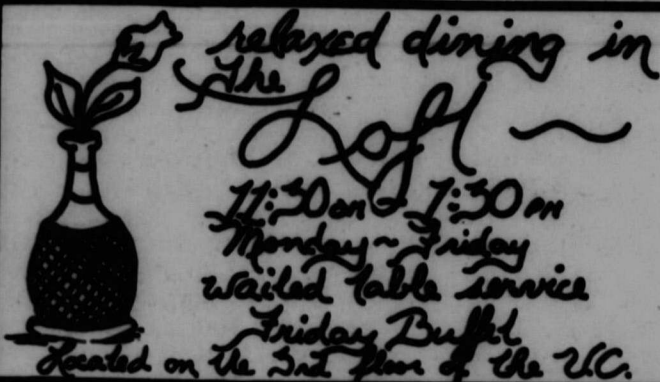 relaxed dining in
the
Loft ~
11:30am - 1:30pm
Monday ~ Friday
waited table service
Friday Buffet
Located on the 3rd floor of the U.C.